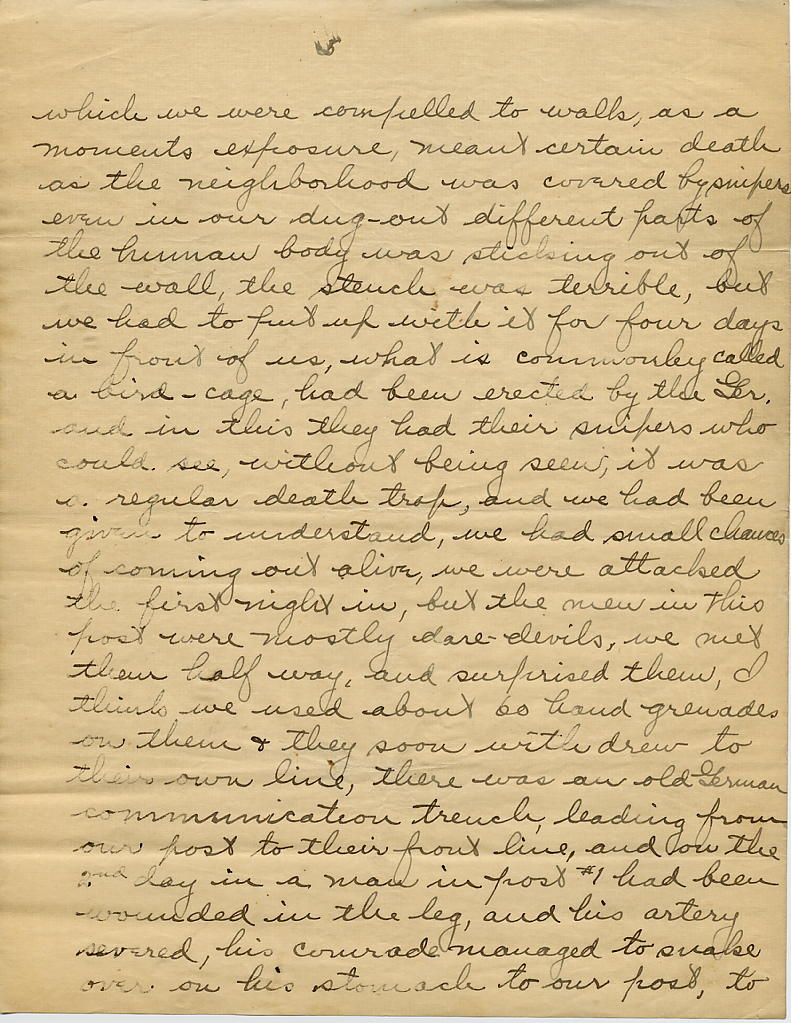 which we were compelled to walk, as a
moments exposure, meant certain death
as the neighborhood was covered by snipers
even in our dug-out different parts of
the human body was sticking out of
the wall, the stench was terrible, but
we had to put up with it for four days
in front of us, what is commonley called
a bird-cage, had been erected by the Ger.
and in this they had their snipers who
could see, without being seen, it was
a regular death trap, and we had been
given to understand, we had small chances
of coming out alive, we were attacked
the first night in, but the men in this
post were mostly dare-devils, we met
them half way, and surprised them, I
think we used about 60 hand grenades
on them & they soon withdrew to
their own line, there was an old German
communication trench, leading from
our post to their front line, and on the
2nd day in a man in post #1 had been
wounded in the leg, and his artery
severed, his comrade managed to snake
over on his stomach to our post, to